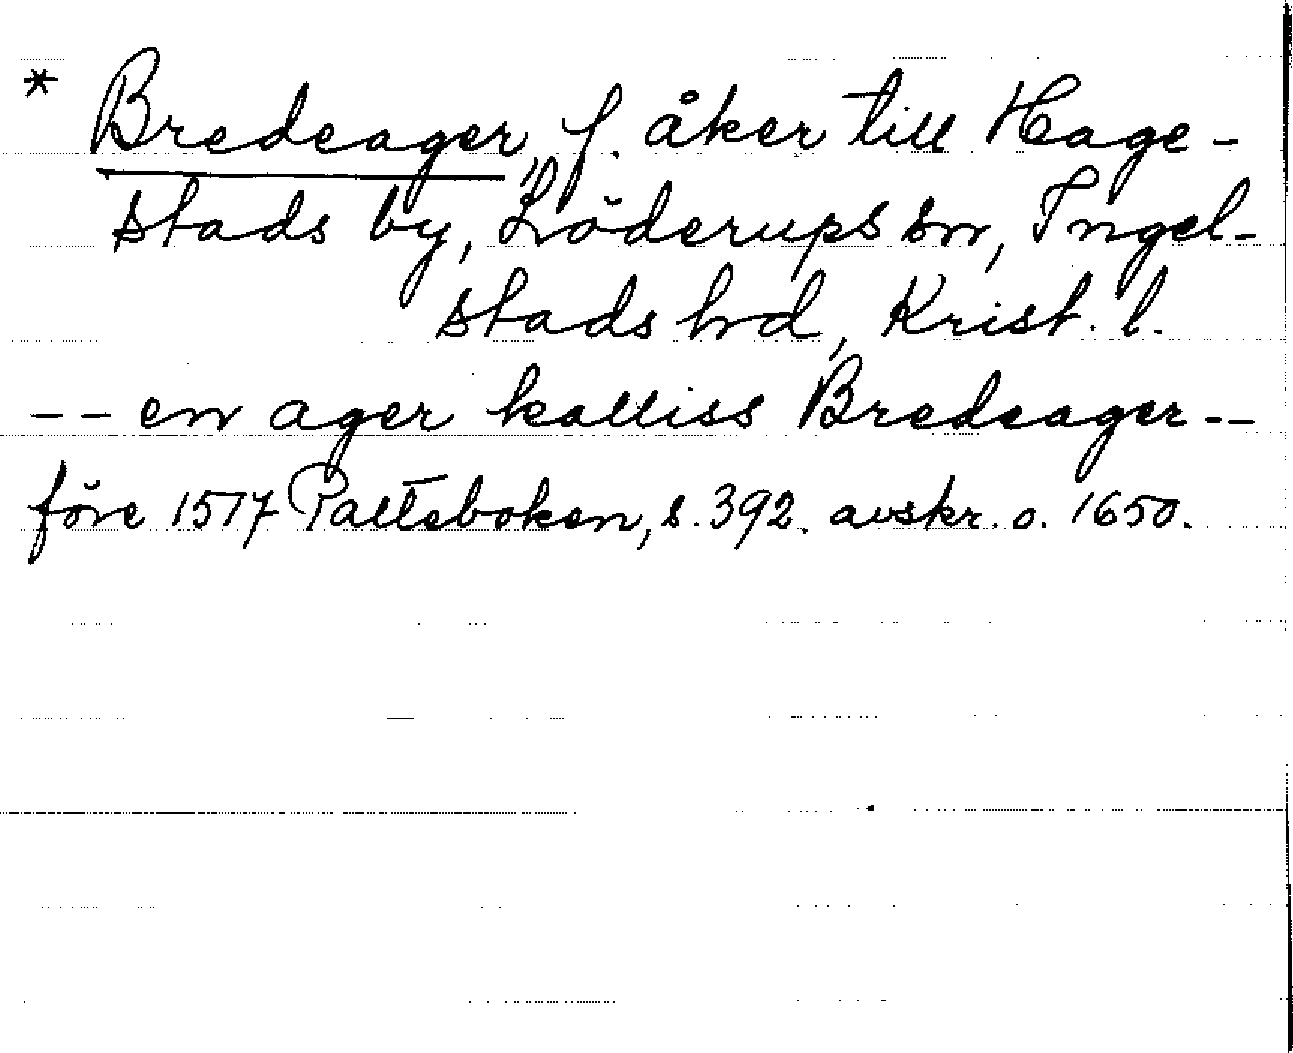 * Bredeager, f. åker till Hage-
stads by, Löderups sn, Ingel-
stads hrd, Krist. l.
-- en ager kalliss Bredeager --
före 1517 Palteboken, s. 392. avskr. o. 1650.